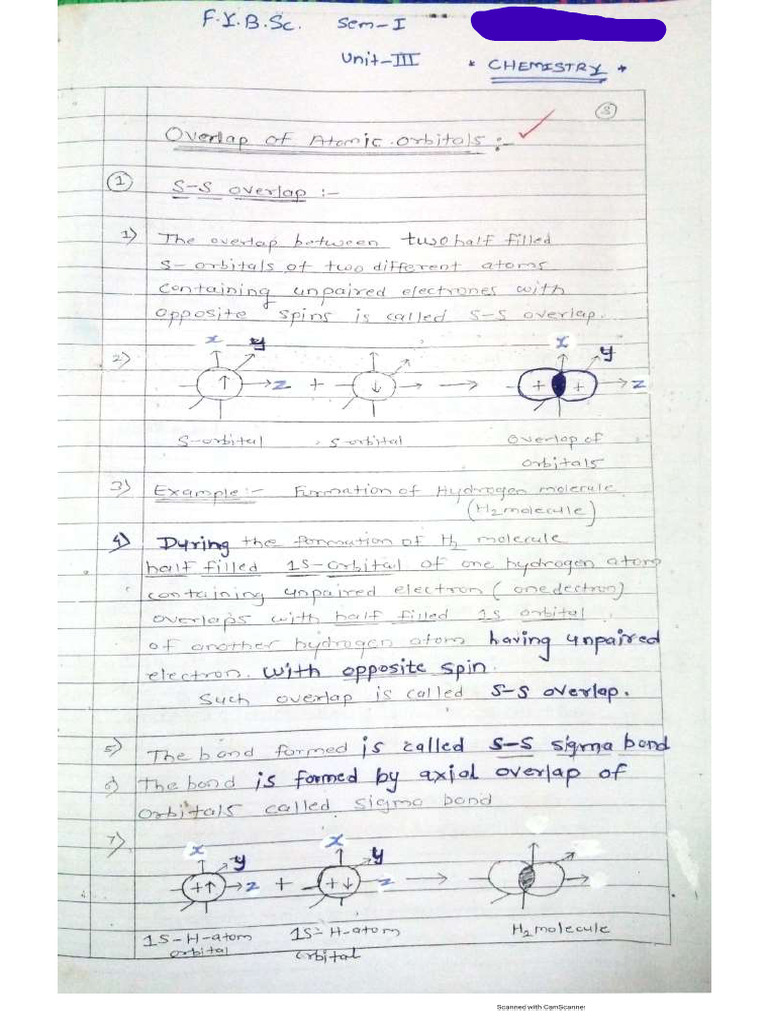 F.Y.B.Sc. Sem-I
Unit-III * CHEMISTRY *
3
Overlap of Atomic orbitals :-
① S-S overlap :-
1) The overlap between two half filled
S-orbitals of two different atoms
containing unpaired electrones with
opposite spins is called S-S overlap.
2) x y z + → x y z
↑ ↓ + +
S-orbital S orbital Overlap of
orbitals
3) Example :- Formation of Hydrogen molecule
(H2 molecule)
4) During the formation of H2 molecule
half filled 1S-orbital of one hydrogen atom
containing unpaired electron (one electron)
overlaps with half filled 1S orbital
of another hydrogen atom having unpaired
electron. with opposite spin.
Such overlap is called S-S overlap.
5) The bond formed is called S-S sigma bond
6) The bond is formed by axial overlap of
orbitals called sigma bond
7) x y z + x y z →
+↑ +↓
1S-H-atom 1S-H-atom H2 molecule
orbital orbital
Scanned with CamScanner